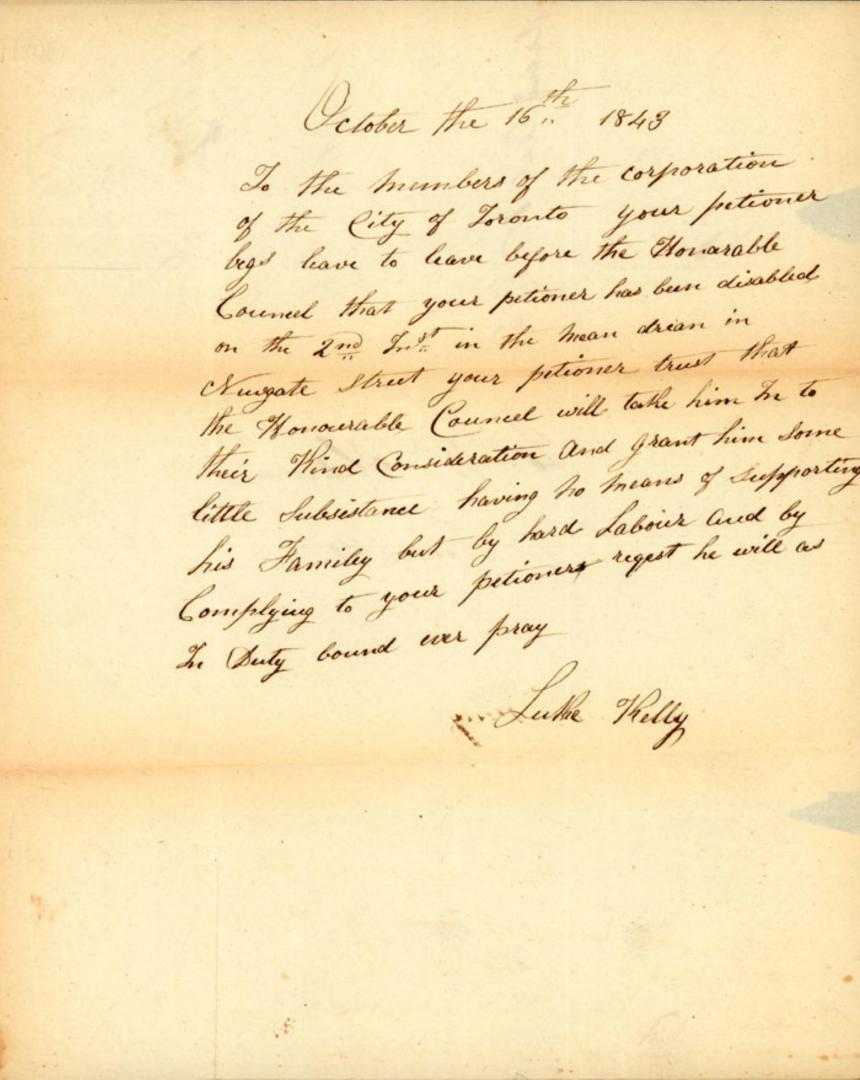 October the 16th 1843
To the members of the corporation
of the City of Toronto your petioner
begs leave to leave before the Honarable
Councel that your petioner has been disabled
on the 2nd Inst in the mean drean in
Newgate Street your petioner trust that
the Honourable Councel will take him In to
their Kind Consideration And grant him Some
little Subsistance having no means of Supporting
his Familey but by hard Labour and by
Complying to your petioners regest he will as
In Duty bound ever pray
Luke Kelly